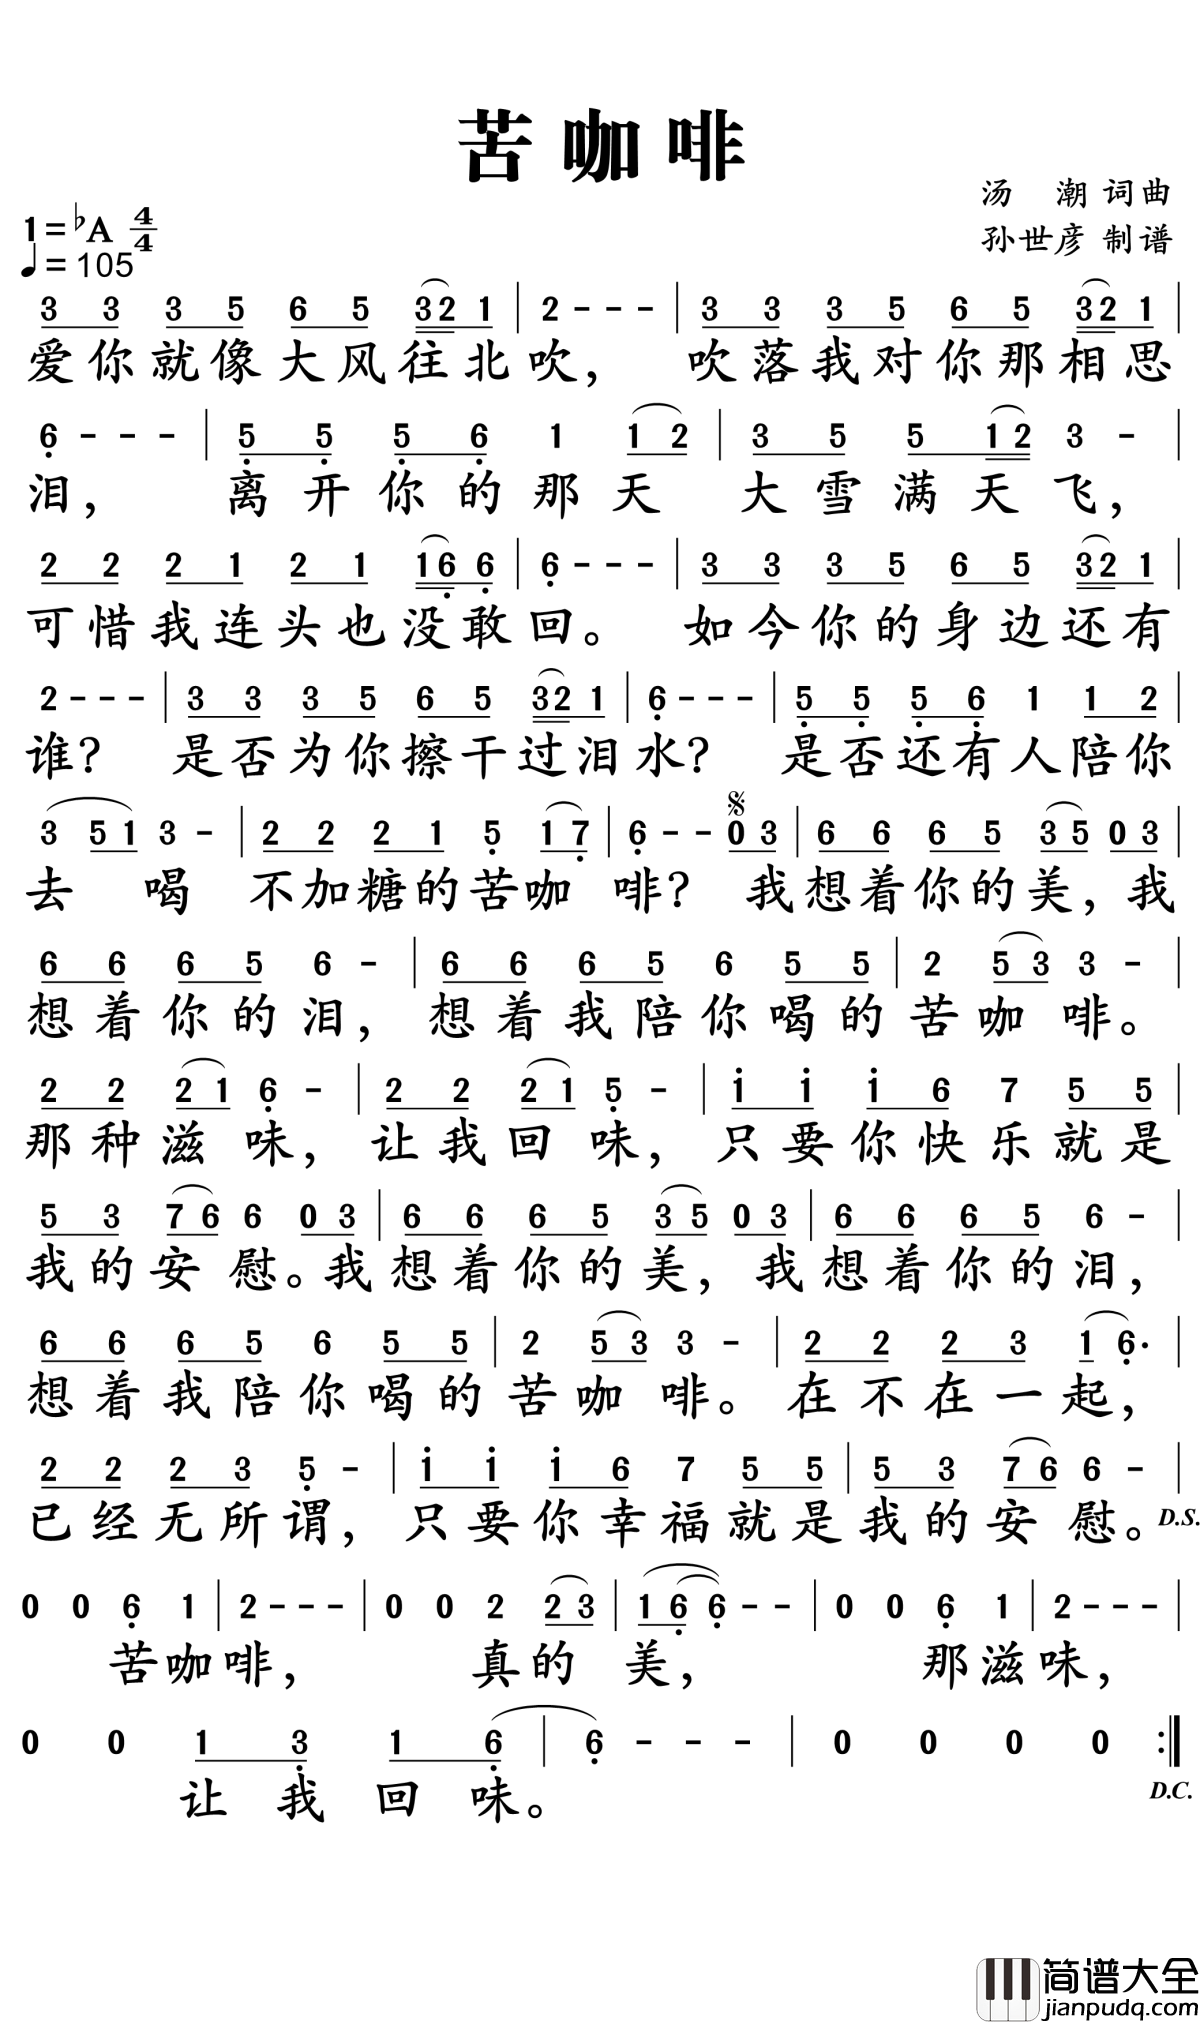 苦咖啡
汤 潮 词曲
孙世彦 制谱
1=♭A 4/4
♩=105
3 3 3 5 6 5 32 1 | 2 - - - | 3 3 3 5 6 5 32 1 |
爱你就像大风往北吹， 吹落我对你那相思
6̣ - - - | 5̣ 5̣ 5̣ 6̣ 1 1 2 | 3 5 5 12 3 - |
泪， 离开你的那天 大雪满天飞，
2 2 2 1 2 1 16̣ 6̣ | 6̣ - - - | 3 3 3 5 6 5 32 1 |
可惜我连头也没敢回。 如今你的身边还有
2 - - - | 3 3 3 5 6 5 32 1 | 6̣ - - - | 5̣ 5̣ 5̣ 6̣ 1 1 2 |
谁？ 是否为你擦干过泪水？ 是否还有人陪你
3 5 1 3 - | 2 2 2 1 5̣ 1 7̣ | 6̣ - - 𝄋 0 3 | 6 6 6 5 3 5 0 3 |
去 喝 不加糖的苦咖 啡？ 我想着你的美，我
6 6 6 5 6 - | 6 6 6 5 6 5 5 | 2 5 3 3 - |
想着你的泪， 想着我陪你喝的苦咖 啡。
2 2 2 1 6̣ - | 2 2 2 1 5̣ - | 1̇ 1̇ 1̇ 6 7 5 5 |
那种滋 味， 让我回 味， 只要你快乐就是
5 3 7 6 6 0 3 | 6 6 6 5 3 5 0 3 | 6 6 6 5 6 - |
我的安 慰。我想着你的美， 我想着你的泪，
6 6 6 5 6 5 5 | 2 5 3 3 - | 2 2 2 3 1 6̣· |
想着我陪你喝的苦咖 啡。 在不在一起，
2 2 2 3 5̣ - | 1̇ 1̇ 1̇ 6 7 5 5 | 5 3 7 6 6 - |
已经无所谓， 只要你幸福就是我的安 慰。 D.S.
0 0 6̣ 1 | 2 - - - | 0 0 2 2 3 | 1 6̣ 6̣ - - | 0 0 6̣ 1 | 2 - - - |
苦咖啡， 真的 美， 那滋味，
0 0 1 3̣ 1 6̣ | 6̣ - - - | 0 0 0 0 :‖
让我回味。 D.C.
简谱大全
jianpudq.com